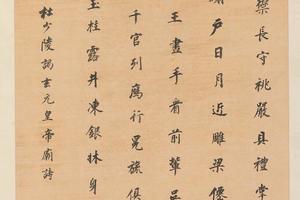 長守祧嚴具禮掌
戶日月近雕梁僊
王畫手看前輩吳
千官列鴈行冕旒俱
玉桂露井凍銀牀身
杜少陵謁玄元皇帝廟詩